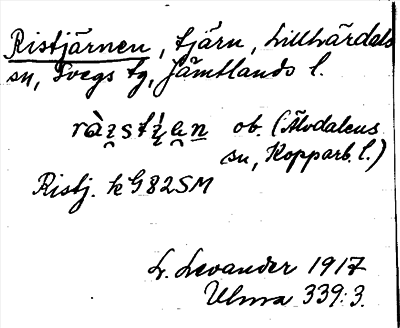 Ristjärnen, tjärn, Lillhärdals
sn, Svegs tg, Jämtlands l.
ob. (Älvdalens
sn, Kopparb. l.)
Ristj. k G82SM
L. Levander 1917
Ulma 339:3.